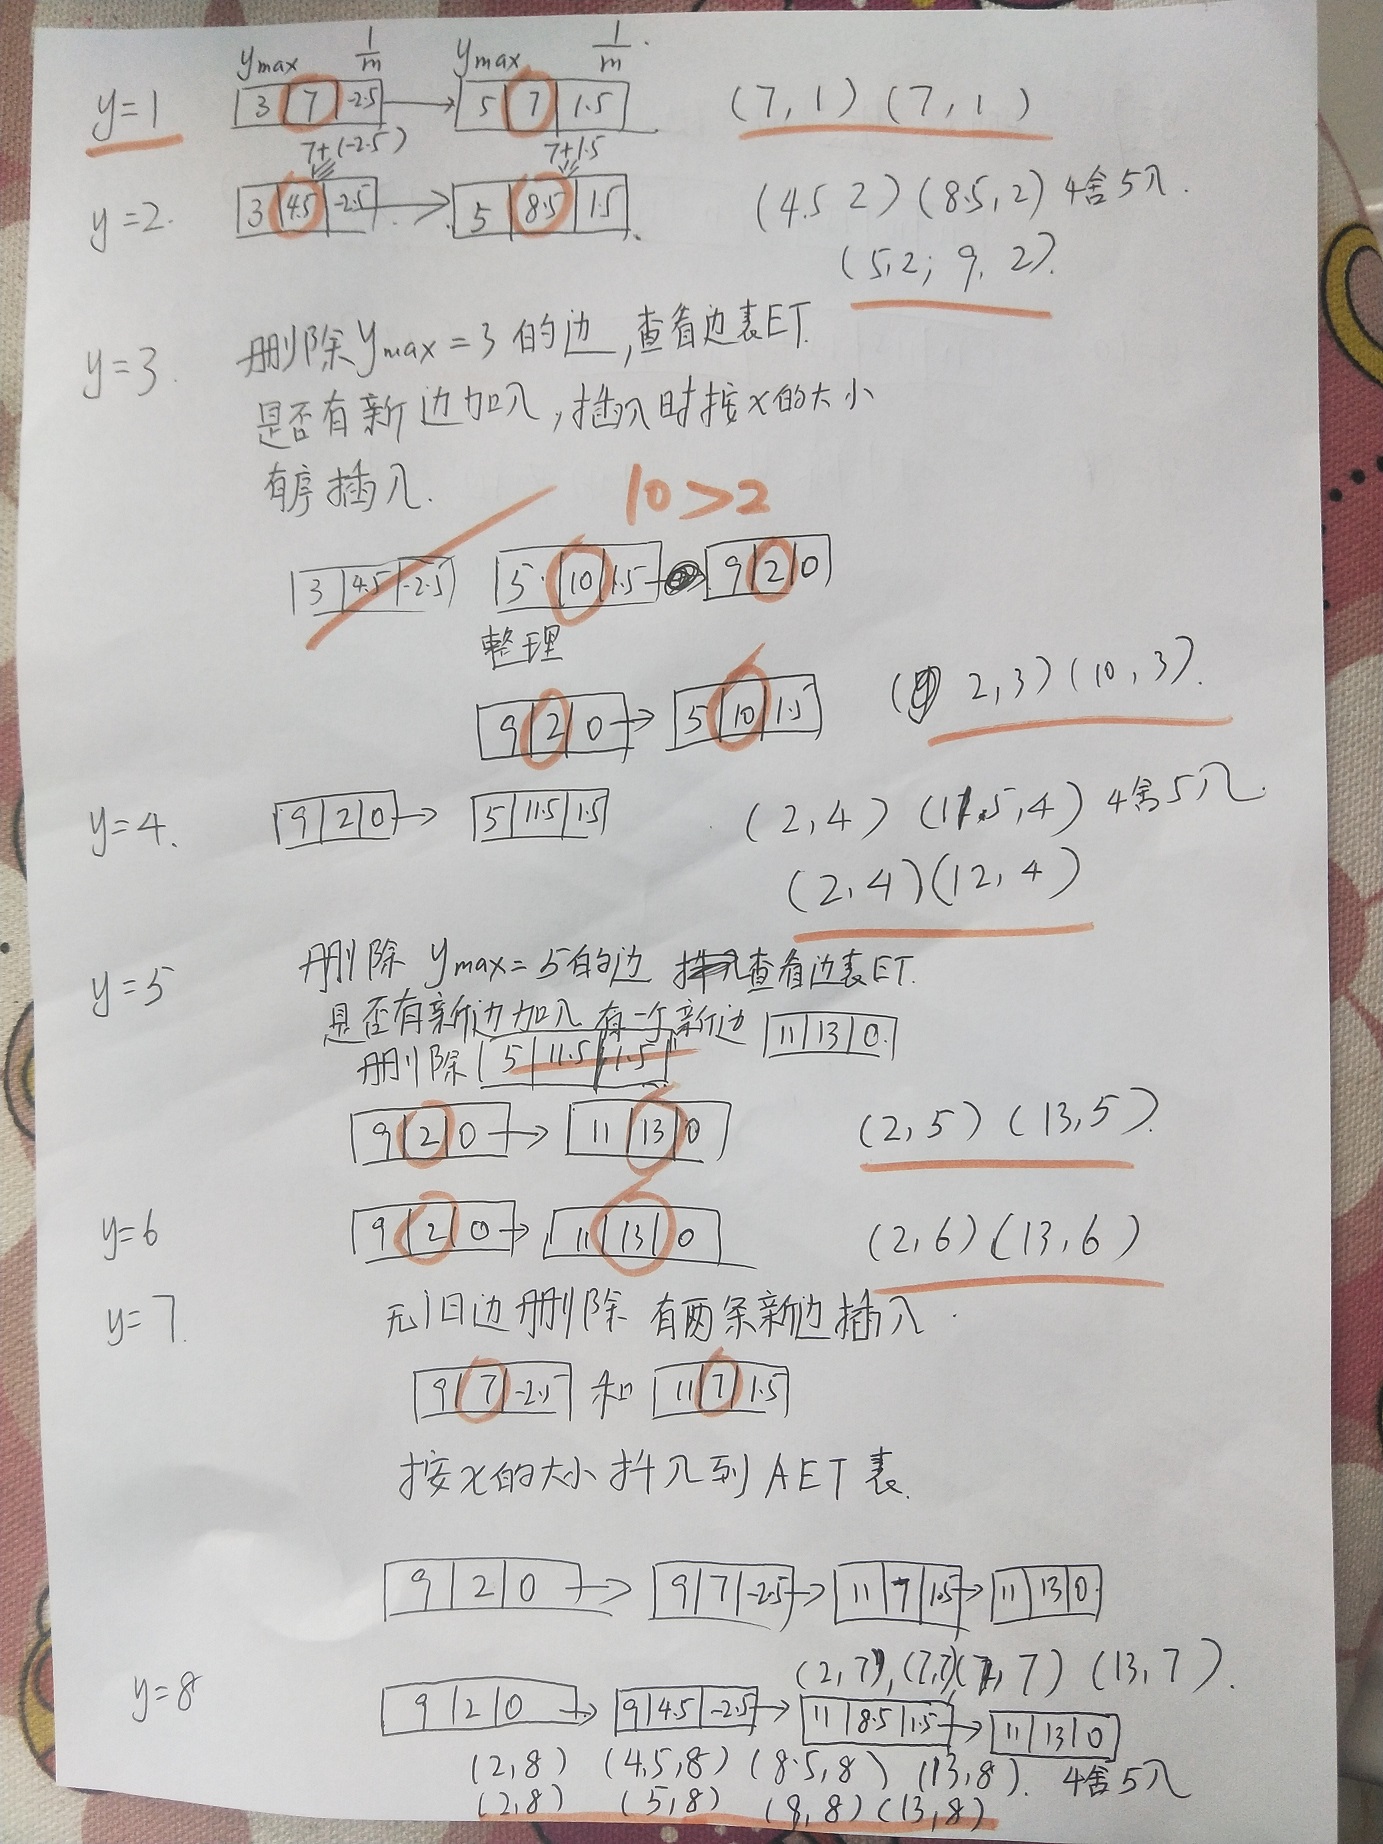 ymax 1/m ymax 1/m
y=1 3 7 -2.5 → 5 7 1.5 (7,1) (7,1)
7+(-2.5) 7+1.5
y=2. 3 4.5 -2.5 → 5 8.5 1.5 (4.5 2) (8.5,2) 4舍5入.
(5,2; 9,2).
y=3. 删除ymax=3的边,查看边表ET.
是否有新边加入,插入时按x的大小
有序插入.
10>2
3 4.5 -2.5 5. 10 1.5 → 9 2 0
整理
9 2 0 → 5 10 1.5 ( 2,3) (10,3).
y=4. 9 2 0 → 5 11.5 1.5 (2,4) (11.5,4) 4舍5入.
(2,4)(12,4)
y=5 删除 ymax=5的边 查看边表ET.
是否有新边加入 有一个新边 11 13 0.
删除 5 11.5 1.5
9 2 0 → 11 13 0 (2,5) (13,5).
y=6 9 2 0 → 11 13 0 (2,6) (13,6)
y=7. 无旧边删除 有两条新边插入.
9 7 -2.5 和 11 7 1.5
按x的大小插入到AET表.
9 2 0 → 9 7 -2.5 → 11 7 1.5 → 11 13 0.
(2,7), (7,7) (7,7) (13,7).
y=8 9 2 0 → 9 4.5 -2.5 → 11 8.5 1.5 → 11 13 0
(2,8) (4.5,8) (8.5,8) (13,8). 4舍5入
(2,8) (5,8) (9,8) (13,8)